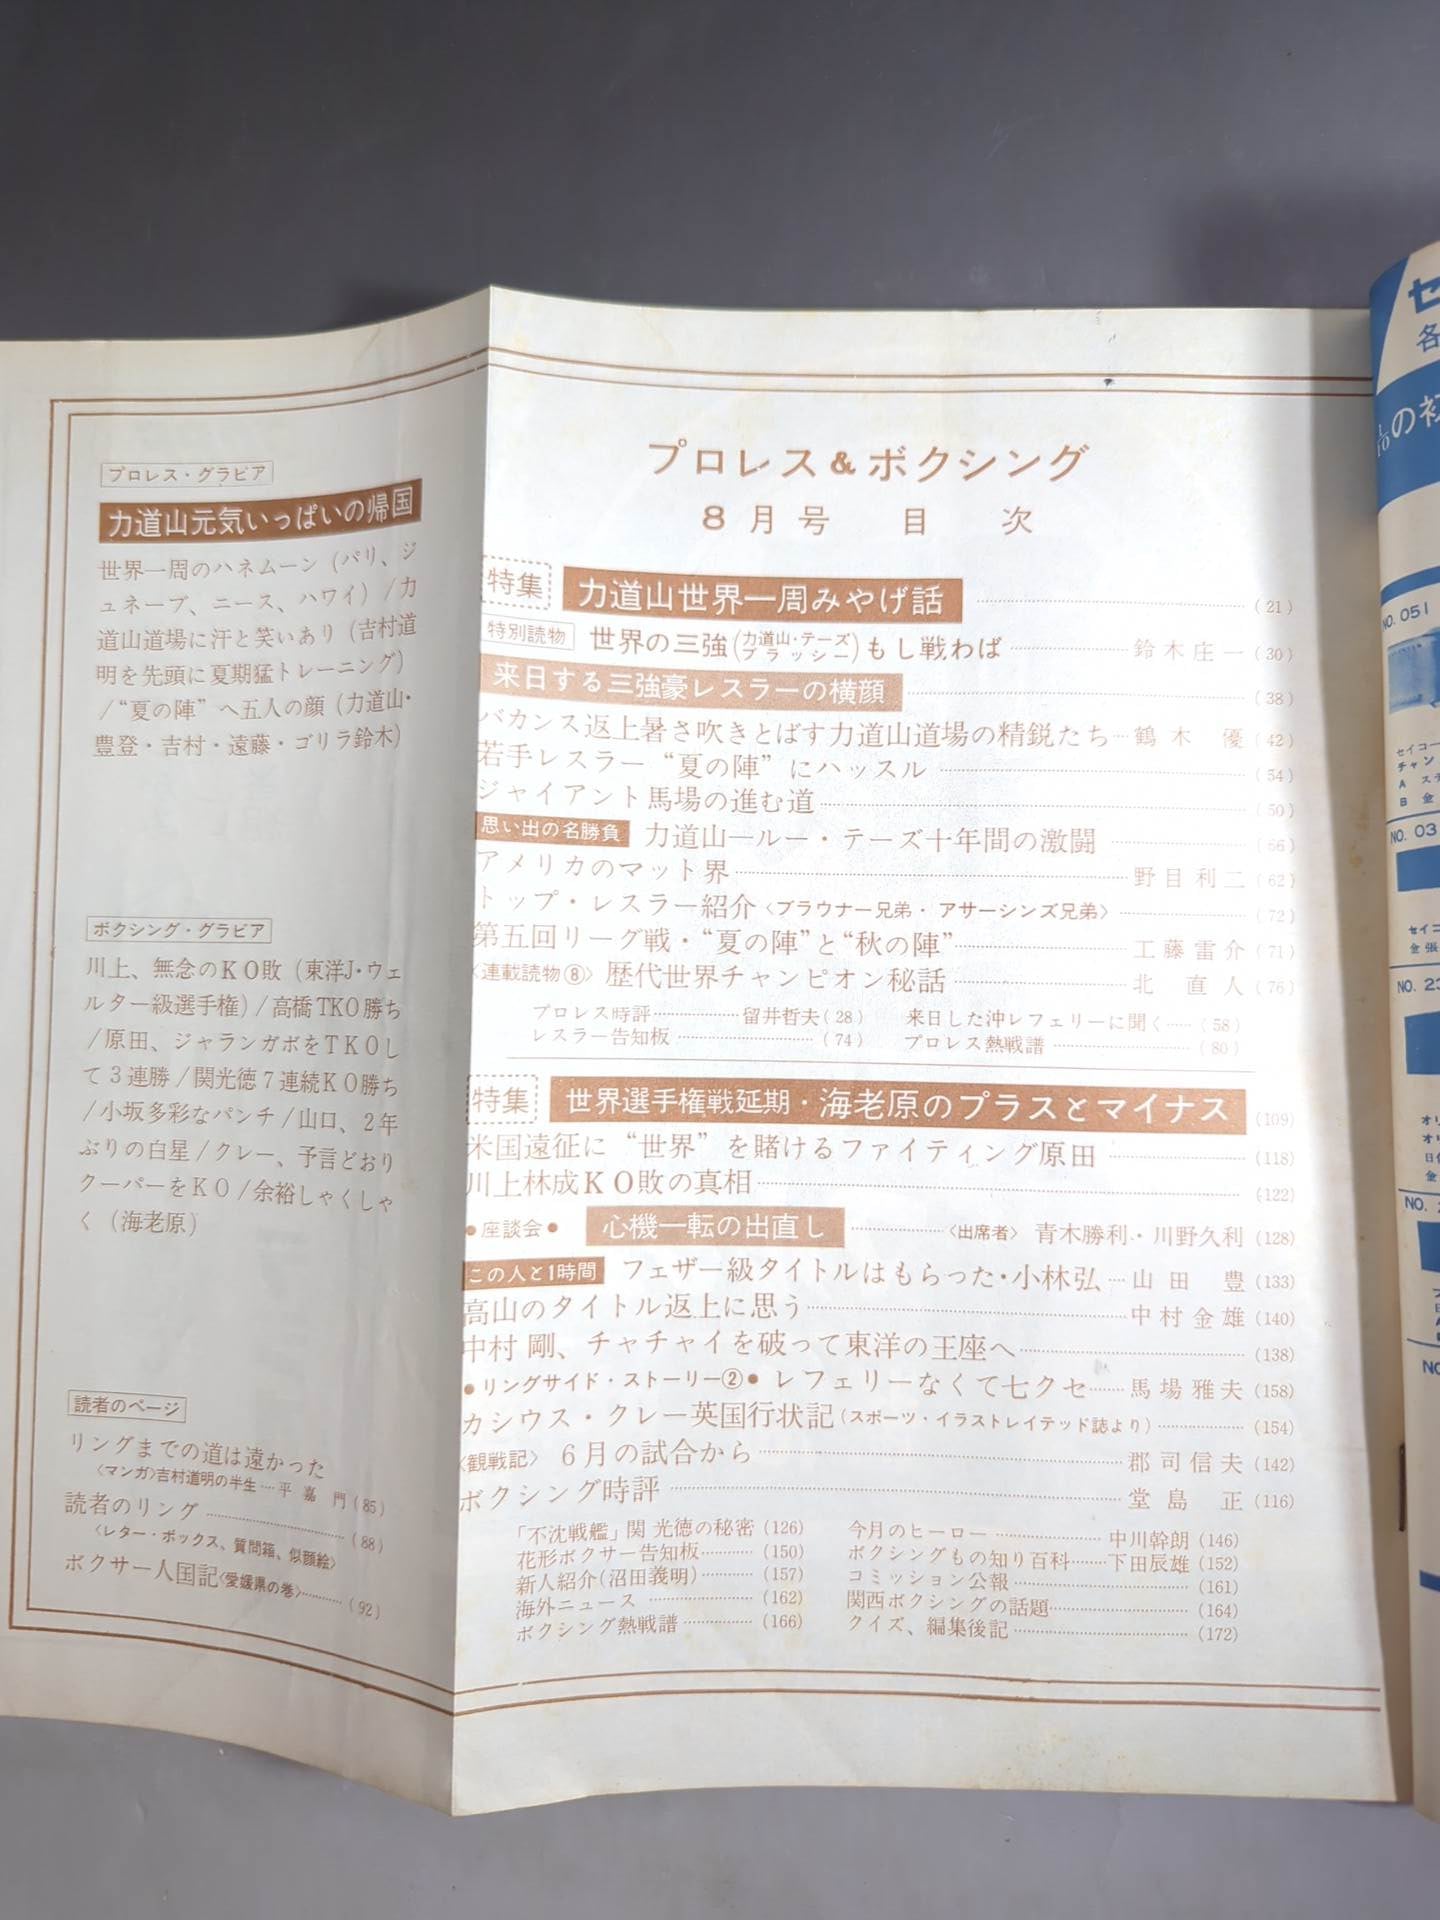 プロレス・グラビア
力道山元気いっぱいの帰国
世界一周のハネムーン（パリ、ジ
ュネーブ、ニース、ハワイ）/力
道山道場に汗と笑いあり（吉村道
明を先頭に夏期猛トレーニング）
/“夏の陣”へ五人の顔（力道山・
豊登・吉村・遠藤・ゴリラ鈴木）
ボクシング・グラビア
川上、無念のＫＯ敗（東洋J・ウェ
ルター級選手権）/高橋TKO勝ち
/原田、ジャランガボをＴＫＯし
て３連勝/関光徳７連続ＫＯ勝ち
/小坂多彩なパンチ/山口、２年
ぶりの白星/クレー、予言どおり
クーパーをＫＯ/余裕しゃくしゃ
く（海老原）
読者のページ
リングまでの道は遠かった
〈マンガ〉吉村道明の半生…平嘉門(85)
読者のリング……(88)
〈レター・ボックス、質問箱、似顔絵〉
ボクサー人国記〈愛媛県の巻〉……(92)
プロレス&ボクシング
8月号 目次
特集 力道山世界一周みやげ話……(21)
特別読物 世界の三強(力道山・テーズ ブラッシー)もし戦わば……鈴木庄一(30)
来日する三強豪レスラーの横顔……(38)
バカンス返上暑さ吹きとばす力道山道場の精鋭たち…鶴木 優(42)
若手レスラー“夏の陣”にハッスル……(54)
ジャイアント馬場の進む道……(50)
思い出の名勝負 力道山—ルー・テーズ十年間の激闘……(66)
アメリカのマット界……野目利二(62)
トップ・レスラー紹介〈ブラウナー兄弟・アサーシンズ兄弟〉……(72)
第五回リーグ戦・“夏の陣”と“秋の陣”……工藤雷介(71)
〈連載読物⑧〉歴代世界チャンピオン秘話……北 直人(76)
プロレス時評……留井哲夫(28) 来日した沖レフェリーに聞く……(58)
レスラー告知板……(74) プロレス熱戦譜……(80)
特集 世界選手権戦延期・海老原のプラスとマイナス(109)
米国遠征に“世界”を賭けるファイティング原田……(118)
川上林成ＫＯ敗の真相……(122)
●座談会● 心機一転の出直し……〈出席者〉青木勝利・川野久利(128)
この人と1時間 フェザー級タイトルはもらった・小林弘…山田 豊(133)
高山のタイトル返上に思う……中村金雄(140)
中村剛、チャチャイを破って東洋の王座へ……(138)
●リングサイド・ストーリー②●レフェリーなくて七クセ……馬場雅夫(158)
カシウス・クレー英国行状記(スポーツ・イラストレイテッド誌より)……(154)
〈観戦記〉６月の試合から……郡司信夫(142)
ボクシング時評……堂島 正(116)
「不沈戦艦」関 光徳の秘密(126) 今月のヒーロー……中川幹朗(146)
花形ボクサー告知板……(150) ボクシングもの知り百科……下田辰雄(152)
新人紹介(沼田義明)……(157) コミッション公報……(161)
海外ニュース……(162) 関西ボクシングの話題……(164)
ボクシング熱戦譜……(166) クイズ、編集後記……(172)
セ
各
1/10の初
NO. 051
セイコー
チャン
A ステ
B 金
NO. 03
セイコ
金張
NO. 23
オリ
オ
日
金
NO.
NO